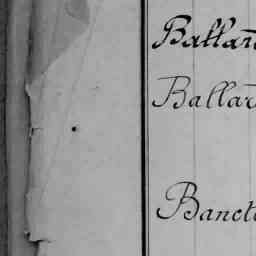 Ballar
Ballar
Banct